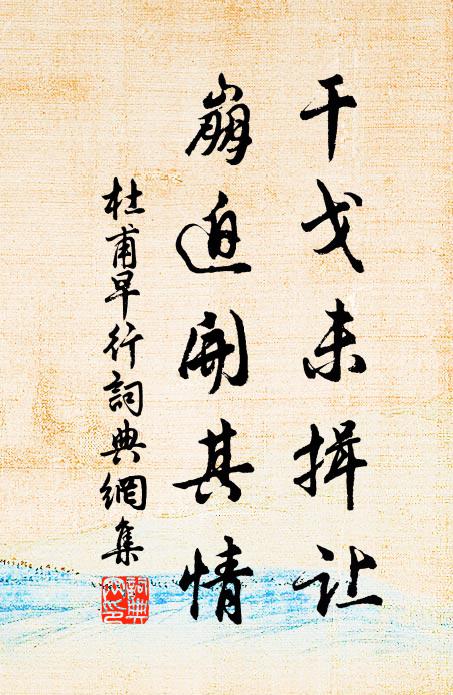 干戈未揖让
崩迫開其情
杜甫早行詞典網集